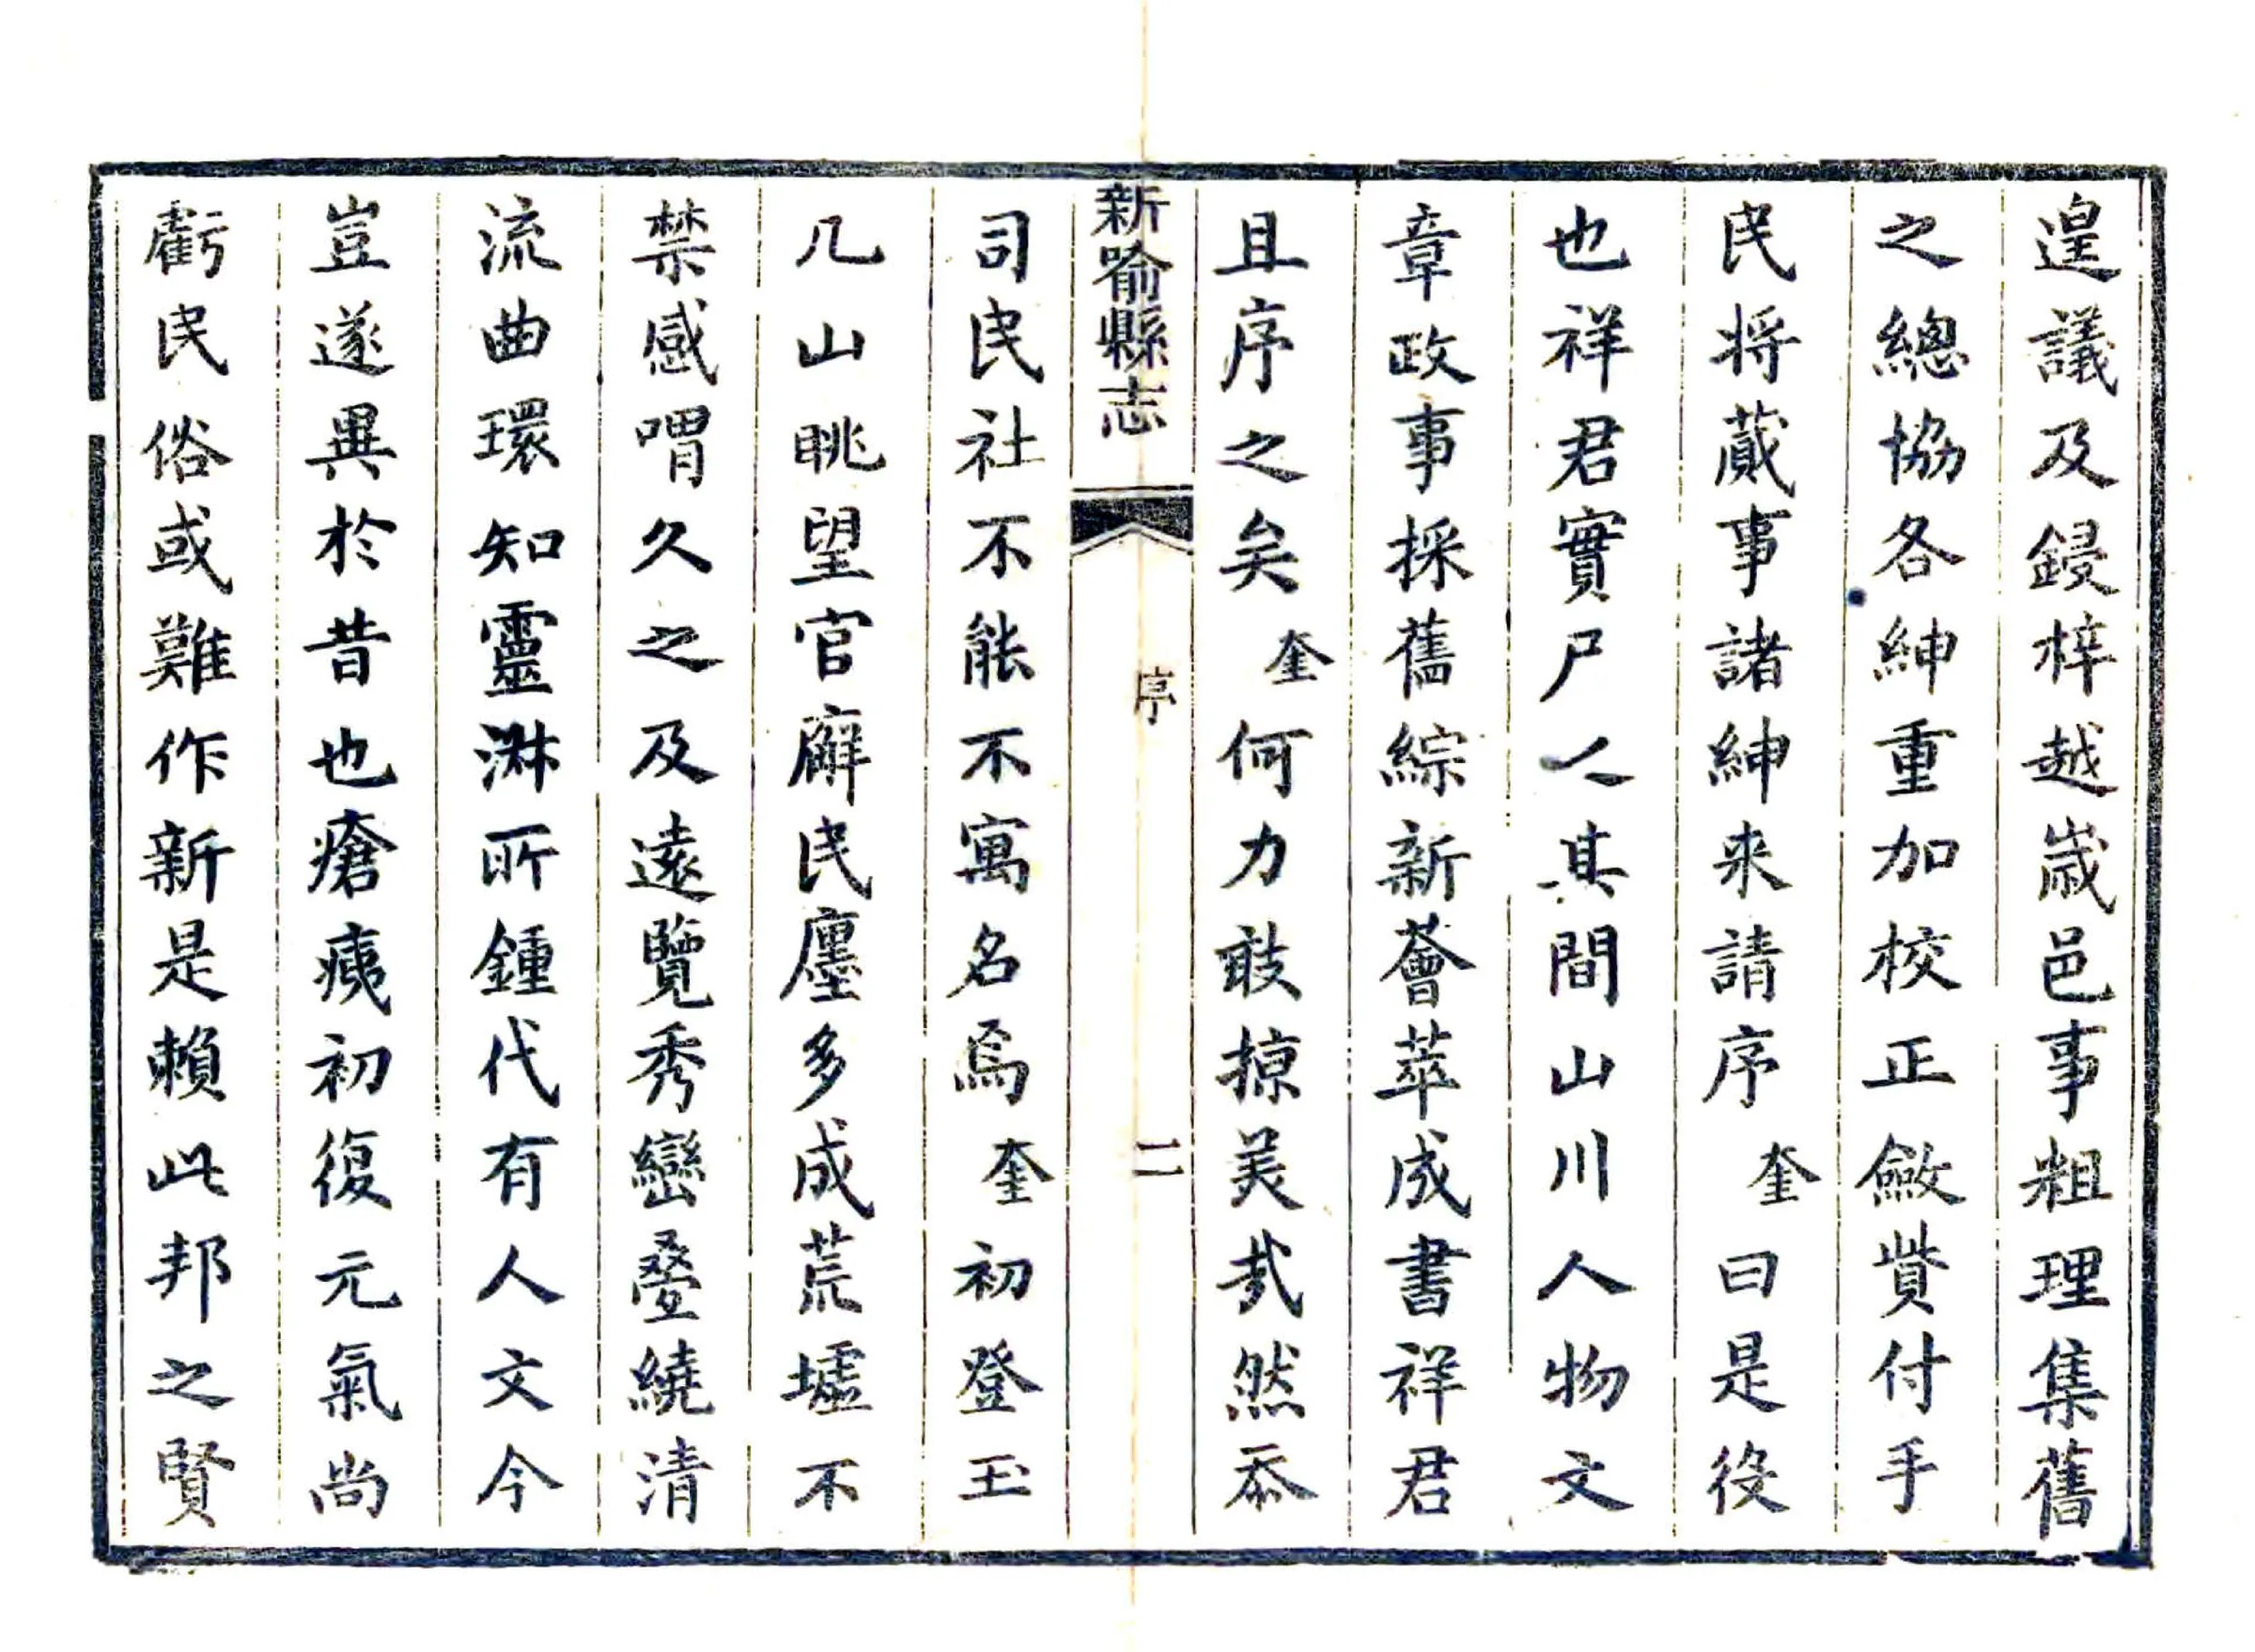 遑議及鋟梓越歲邑事粗理集舊
之總協各紳重加校正斂貲付手
民將蕆事諸紳來請序奎曰是役
也祥君實尸之其間山川人物文
章政事採舊綜新薈萃成書祥君
且序之矣奎何力敢掠美哉然忝
新喻縣志
序
二
司民社不能不寓名焉奎初登玉
几山眺望官廨民廛多成荒墟不
禁感喟久之及遠覽秀巒疊繞清
流曲環知靈淋所鍾代有人文今
豈遂異於昔也瘡痍初復元氣尚
虧民俗或難作新是賴此邦之賢